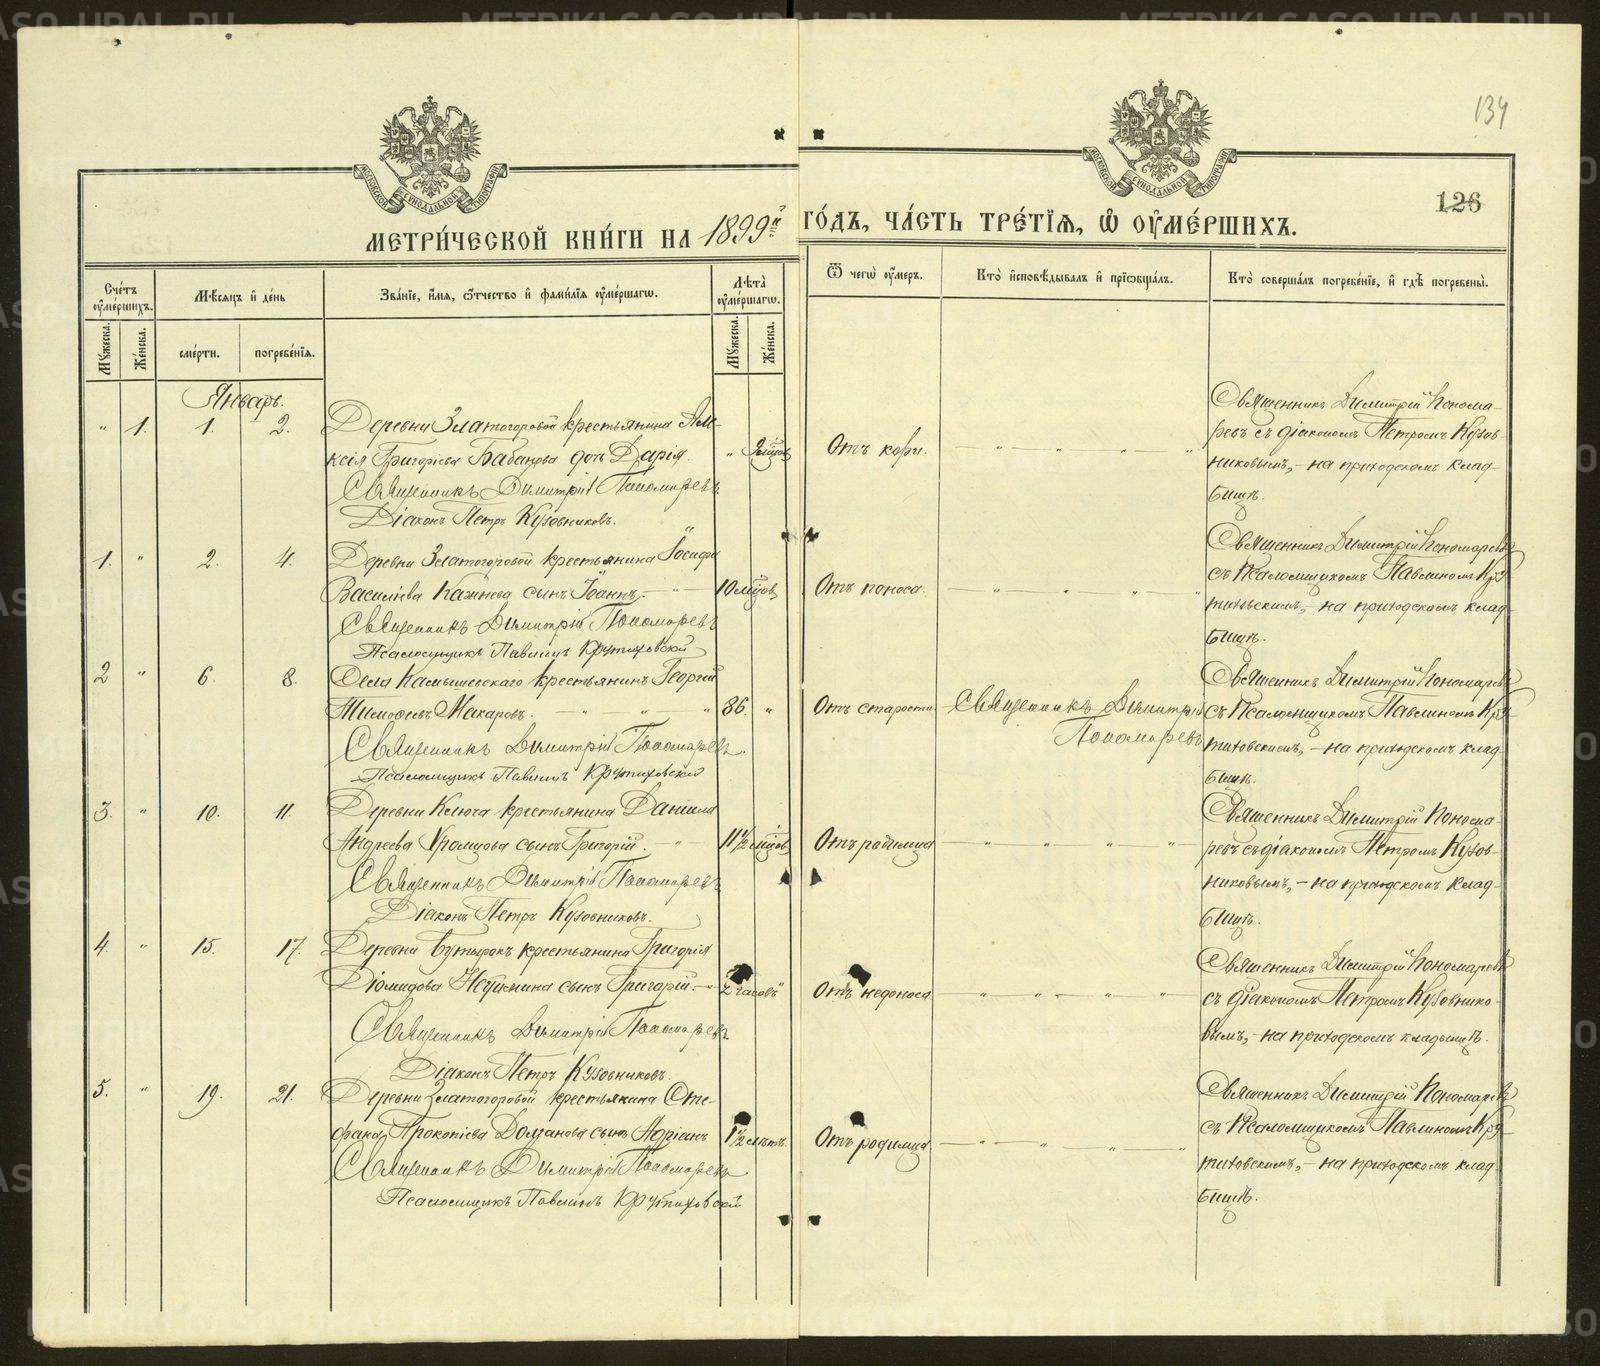 134
126
МОСКОВСКОЙ СУНОДАЛЬНОЙ ТИПОГРАФІИ
МОСКОВСКОЙ СУНОДАЛЬНОЙ ТИПОГРАФІИ
МЕТРИ́ЧЕСКОЙ КНИ́ГИ НА 1899й ГО́ДЪ, ЧА́СТЬ ТРЕ́ТЇѦ, Ѡ҆ ОУ҆МЕ́РШИХЪ.
Сче́тъ оу҆ме́ршихъ.
Мꙋ́жеска.
Же́нска.
Мѣ́сѧцъ и҆ де́нь
сме́рти.
погребе́нїѧ.
Зва́нїе, и҆́мѧ, ѻ҆́тчество и҆ фами́лїѧ оу҆ме́ршагѡ.
Лѣ́та оу҆ме́ршагѡ.
Мꙋ́жеска.
Же́нска.
Ѿ чегѡ̀ оу҆́меръ.
Кто̀ и҆сповѣ́дывалъ и҆ прїѡбща́лъ.
Кто̀ соверша́лъ погребе́нїе, и҆ гдѣ̀ погребены̀.
Январь.
" 1. 1. 2.
Деревни Златогоровой крестьянина Але-
ксія Григоріева Бабанова дочь Дарія. " 2 мѣсяц.
Священникъ Димитрій Пономаревъ
Діаконъ Петръ Кузовниковъ.
Отъ кори.
Священникъ Димитрій Понома-
ревъ съ діакономъ Петромъ Кузов-
никовымъ, – на приходскомъ клад-
бищѣ.
1. " 2. 4.
Деревни Златогоровой крестьянина Іосифа
Василіева сынъ Іоаннъ. 10 мѣсяц.
Священникъ Димитрій Пономаревъ
Псаломщикъ Павлинъ Крутиховскій
Отъ поноса.
Священникъ Димитрій Пономаревъ
съ Псаломщикомъ Павлиномъ Кру-
тиховскимъ, – на приходскомъ клад-
бищѣ.
2 " 6. 8.
Села Камышевскаго крестьянинъ Георгій
Тимофеевъ Макаровъ. 86. "
Священникъ Димитрій Пономаревъ.
Псаломщикъ Павлинъ Крутиховскій
Отъ старости.
Священникъ Димитрій
Пономаревъ
Священникъ Димитрій Пономаревъ
съ Псаломщикомъ Павлиномъ Кру-
тиховскимъ, – на приходскомъ клад-
бищѣ.
3. " 10. 11.
Деревни Ключа крестьянина Даніила
Андреева Хромцова сынъ Григорій. 11½ мѣсяц.
Священникъ Димитрій Пономаревъ
Діаконъ Петръ Кузовниковъ.
Отъ родимца
Священникъ Димитрій Понома-
ревъ съ діакономъ Петромъ Кузов-
никовымъ, – на приходскомъ клад-
бищѣ.
4. " 15. 17.
Деревни Бутырокъ крестьянина Григорія
Діомидова Неуймина сынъ Григорій. 2 часовъ "
Священникъ Димитрій Пономаревъ.
Діаконъ Петръ Кузовниковъ.
Отъ недоноса
Священникъ Димитрій Пономаревъ
съ діакономъ Петромъ Кузовнико-
вымъ, – на приходскомъ кладбищѣ.
5. " 19. 21.
Деревни Златогоровой крестьянина Сте-
фана Прокопіева Долганова сынъ Адріанъ 1½ лѣтъ.
Священникъ Димитрій Пономаревъ
Псаломщикъ Павлинъ Крутиховскій
Отъ родимца
Священникъ Димитрій Пономаревъ
съ Псаломщикомъ Павлиномъ Кру-
тиховскимъ, – на приходскомъ клад-
бищѣ.
METRIKI.GASO-URAL.RU